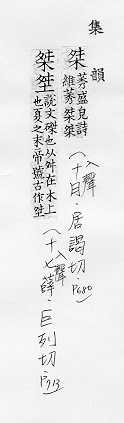 集韻
桀 莠盛皃詩
維莠桀桀
(入聲十月.居謁切.P680)
桀 說文磔也从舛在木上
也夏之末帝號古作
(入聲十七薛.巨列切.P713)